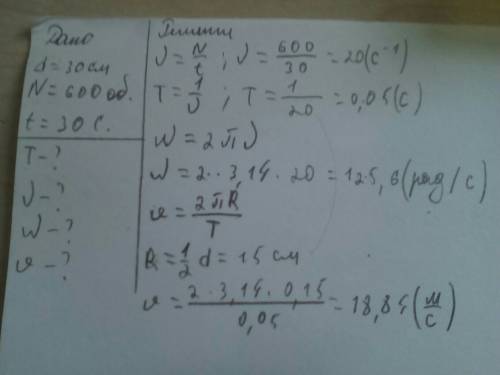 Дано
d = 30 см
N = 600 об.
t = 30 с.
T - ?
ν - ?
ω - ?
υ - ?
Решение
ν = N/t ; ν = 600/30 = 20 (с⁻¹)
T = 1/ν ; T = 1/20 = 0,05 (с)
ω = 2πν
ω = 2 · 3,14 · 20 = 125,6 (рад/с)
υ = 2πR/T
R = 1/2 d = 15 см
υ = 2 · 3,14 · 0,15 / 0,05 = 18,84 (м/с)